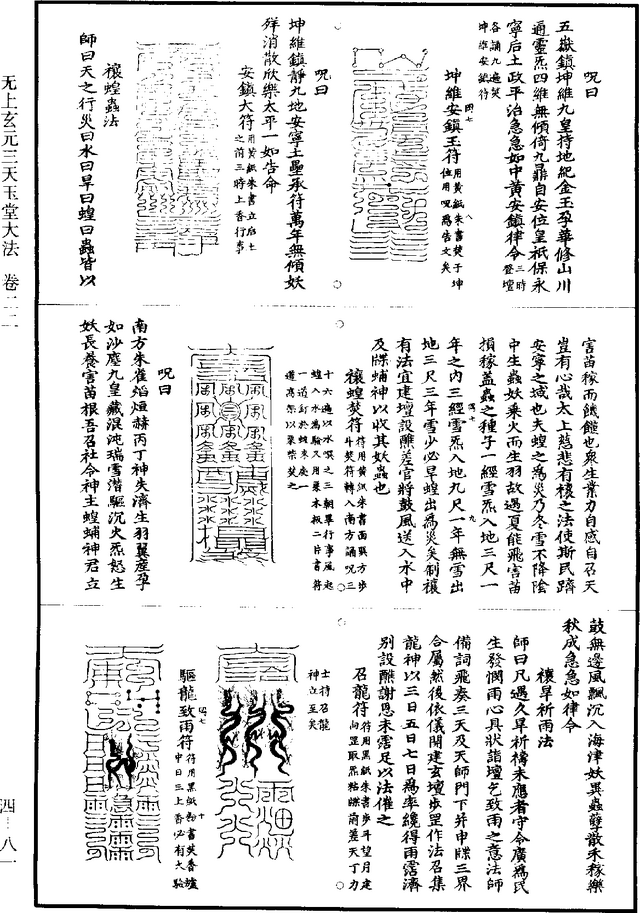 无上玄元三天玉堂大法 卷二二
四—八一
呪曰
五嶽鎮坤維九皇持地紀金玉孕華修山川
通靈炁四維無傾倚九鼎自安位皇祇保永
寧后土政平治急急如中黃安鎮律令三時登壇
各誦九遍焚
坤維安鎮符
坤維安鎮玉符用黃紙朱書焚于坤
位用呪為告文矣
呪曰
坤維鎮靜九地安寧土壘承符萬年無傾妖
祥消散欣樂太平一如告命
安鎮大符用黃紙朱書立后土
之前三時上香行事
禳蝗蟲法
師曰天之行災曰水曰旱曰蝗曰蟲皆以
害苗稼而饑饉也眾生業力自感自召天
豈有心哉太上慈悲有禳之法使斯民躋
安寧之域也夫蝗之為災乃冬雪不降陰
中生蟲妖乘火而生羽故遇夏能飛害苗
損稼蓋蟲之種子一經雪炁入地三尺一
年之內三經雪炁入地九尺一年無雪出
地三尺三年雪少必旱蝗出為災矣制禳
有法宜建壇設醮差官將鼓風送入水中
及牒蜅神以收其妖蟲也
禳蝗焚符符用黃紙朱書面巽方步
斗焚符轉入南方誦呪三
十六遍以水噀之三朝畢行事風起
蝗入水為驗又用棗木板二片書符
一道釘於蝗來處一
道高架以柴焚之
呪曰
南方朱雀焰烜赫丙丁神失濟生羽翼產孕
如沙塵九皇藏混沌瑞雪潛驅沉火炁怒生
妖長養害苗根吾召社令神主蝗蜅神君立
鼓無邊風飄沉入海津妖異蟲孽散禾稼樂
秋成急急如律令
禳旱祈雨法
師曰凡遇久旱祈禱未應者守令廣為民
生發憫雨心具狀詣壇乞致雨之意法師
備詞飛奏三天及天師門下并申牒三界
合屬然後依儀開建玄壇步罡作法召集
龍神以三日五日七日為率纔得雨霑濟
別設醮謝恩未霑足以法催之
召龍符符用黑紙朱書步斗望月建
向罡取炁粘牒前差天丁力
士待召龍
神立至矣
驅龍致雨符符用黑紙粉書焚香爐
中日三上香必有大驗